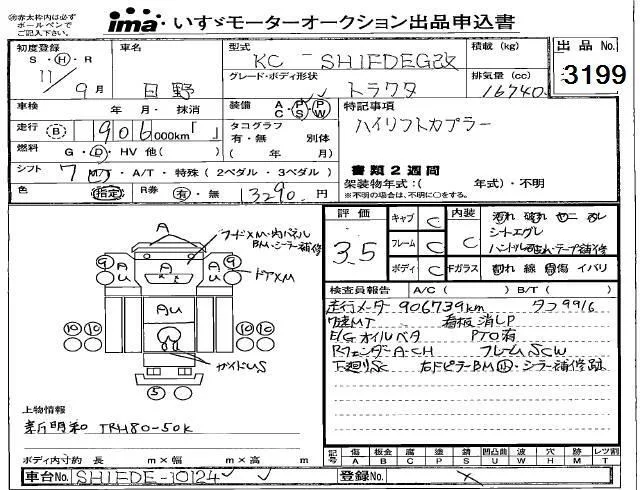 ㊟赤太枠内は必ず
ボールペンで
ご記入下さい。
ima いすゞモーターオークション出品申込書
初度登録
S・H・R
11/9月
車名
日野
型式
KC-SH1FDEG改
積載(kg)
グレード・ボディ形状
トラクタ
排気量(cc)
16740
出品No.
3199
車検
年 月・抹消
装備
A C
P S
P W
特記事項
ハイリフトカプラー
走行
B
906,000km「 」
タコグラフ
有・無 別体
( 年 月)
燃料
G・D・HV 他( )
シフト
7 M/T・A/T・特殊(2ペダル・3ペダル)
書類2週間
架装物年式:( 年式)・不明
※不明の場合は、不明に○をする。
色
指定
R券
有・無
13290 円
評価
3.5
キャブ C
フレーム C
ボディ C
内装 C
シートエグレ
ハンドル テープ補修
Fガラス
割れ 線 傷 イバリ
検査員報告
A/C ( ) B/T ( )
走行メーター 906739km タコ9916
7速MT 看板消しP
E/Gオイルベタ PTO有
RフェンダーA-CH フレームSCW
下廻りSC 右FピラーBM シーラー補修跡
フードXM・内パネル
BM・シーラー補修
ドアXM
A
A
A
A
U
A
U
AU
9
9
10
10
10
10
5
ガイドUS
上物情報
新明和 TRH80-50K
ボディ内寸約 長 m×幅 m×高 m
記号
傷 A
板金 B
腐 C
塗 P
錆 S
凹凸曲 U
波 W
穴 H
交 X
要 M
跡 T
レツ割
車台No.
SH1FDE-10124
登録No.